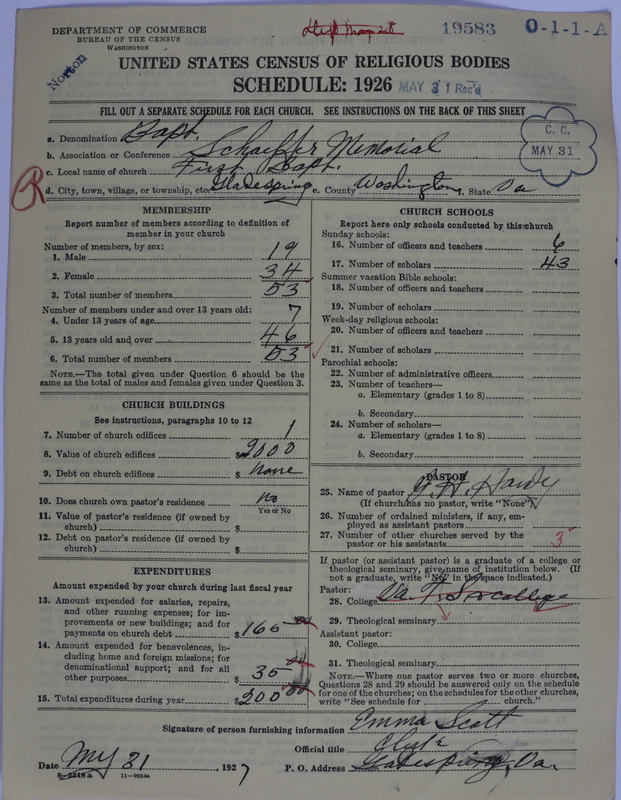 DEPARTMENT OF COMMERCE
BUREAU OF THE CENSUS
WASHINGTON
19583
O-1-1-A
Norton
UNITED STATES CENSUS OF RELIGIOUS BODIES
SCHEDULE: 1926
MAY 31 Rec'd
FILL OUT A SEPARATE SCHEDULE FOR EACH CHURCH. SEE INSTRUCTIONS ON THE BACK OF THIS SHEET
C. C.
MAY 31
a. Denomination Bapt.
b. Association or Conference Schaeffer Memorial
c. Local name of church First Bapt.
R
d. City, town, village, or township, etc. Gladespring e. County Washington f. State Va
MEMBERSHIP
Report number of members according to definition of
member in your church
Number of members, by sex:
1. Male 19
2. Female 34
3. Total number of members 53
Number of members under and over 13 years old:
4. Under 13 years of age 7
5. 13 years old and over 46
6. Total number of members 53
NOTE.—The total given under Question 6 should be the
same as the total of males and females given under Question 3.
CHURCH BUILDINGS
See instructions, paragraphs 10 to 12
7. Number of church edifices 1
8. Value of church edifices $2000
9. Debt on church edifices $ none
10. Does church own pastor's residence no
Yes or No
11. Value of pastor's residence (if owned by
church) $
12. Debt on pastor's residence (if owned by
church) $
EXPENDITURES
Amount expended by your church during last fiscal year
13. Amount expended for salaries, repairs,
and other running expenses; for im-
provements or new buildings; and for
payments on church debt $165
14. Amount expended for benevolences, in-
cluding home and foreign missions; for
denominational support; and for all
other purposes $ 35
15. Total expenditures during year $200
CHURCH SCHOOLS
Report here only schools conducted by this church
Sunday schools:
16. Number of officers and teachers 6
17. Number of scholars 43
Summer vacation Bible schools:
18. Number of officers and teachers
19. Number of scholars
Week-day religious schools:
20. Number of officers and teachers
21. Number of scholars
Parochial schools:
22. Number of administrative officers
23. Number of teachers—
a. Elementary (grades 1 to 8)
b. Secondary
24. Number of scholars—
a. Elementary (grades 1 to 8)
b. Secondary
PASTOR
25. Name of pastor H. Hardy
(If church has no pastor, write "None")
26. Number of ordained ministers, if any, em-
ployed as assistant pastors
27. Number of other churches served by the
pastor or his assistants 3
If pastor (or assistant pastor) is a graduate of a college or
theological seminary, give name of institution below. (If
not a graduate, write "No" in the space indicated.)
Pastor:
28. College Va college
29. Theological seminary
Assistant pastor:
30. College
31. Theological seminary
NOTE.—Where one pastor serves two or more churches,
Questions 28 and 29 should be answered only on the schedule
for one of the churches; on the schedules for the other churches,
write "See schedule for church."
Signature of person furnishing information Emma Scott
Official title Clerk
Date My 31, 1927 P. O. Address Gladespring, Va.
8-5518a 11-9054a